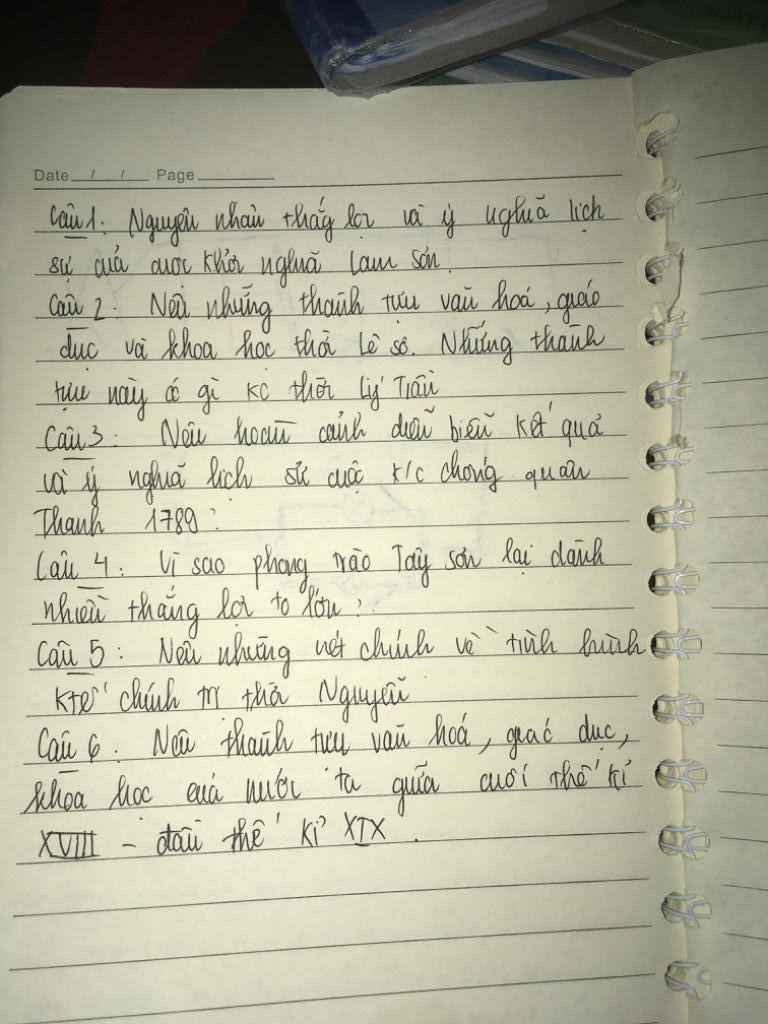 Date / / Page
Câu 1: Nguyên nhân thắg lợi và ý nghĩa lịch
sự của cuộc khởi nghĩa Lam Sơn.
Câu 2: Nêu những thành tựu văn hoá, giáo
dục và khoa học thời Lê sơ. Những thành
tựu này có gì KC thời Lý Trần
Câu 3: Nêu hoàn cảnh diễn biến kết quả
và ý nghĩa lịch sử cuộc K/c chống quân
Thanh 1789:
Câu 4: Vì sao phong trào Tây sơn lại dành
nhiều thắng lợi to lớn:
Câu 5: Nêu những nét chính về tình hình
KTế chính trị thời Nguyễn
Câu 6: Nêu thành tựu văn hoá, giáo dục,
khoa học của nước ta giữa cuối thế kỉ
XVIII - đầu thế kỉ XIX.